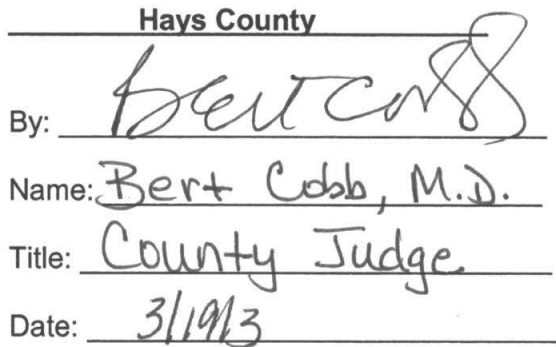 Hays County
By: Bert Cobb
Name: Bert Cobb, M.D.
Title: County Judge
Date: 3/19/13